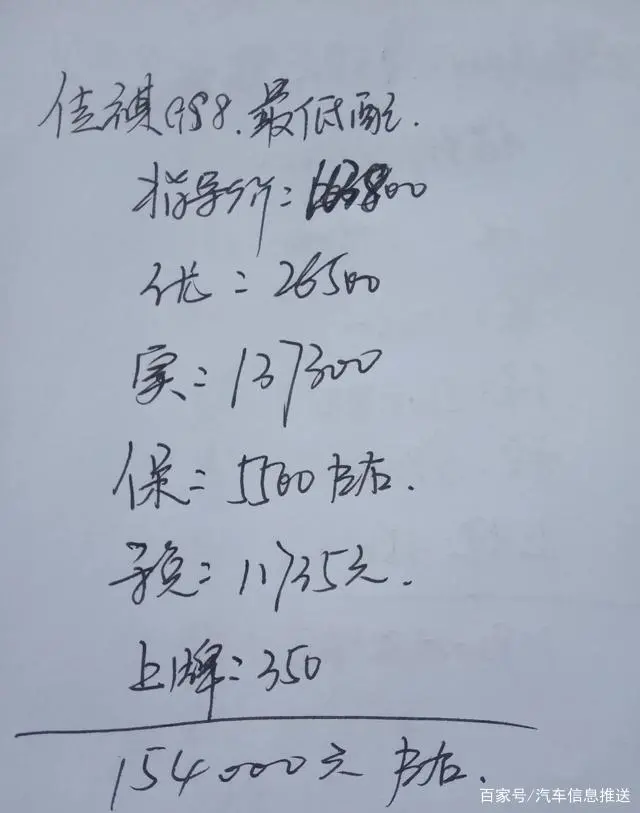 传祺GS8.最低配.
指导价:163800
优:26500
实:137300
保:5500左右.
购:11735元.
上牌:350
154000元左右.
百家号/汽车信息推送